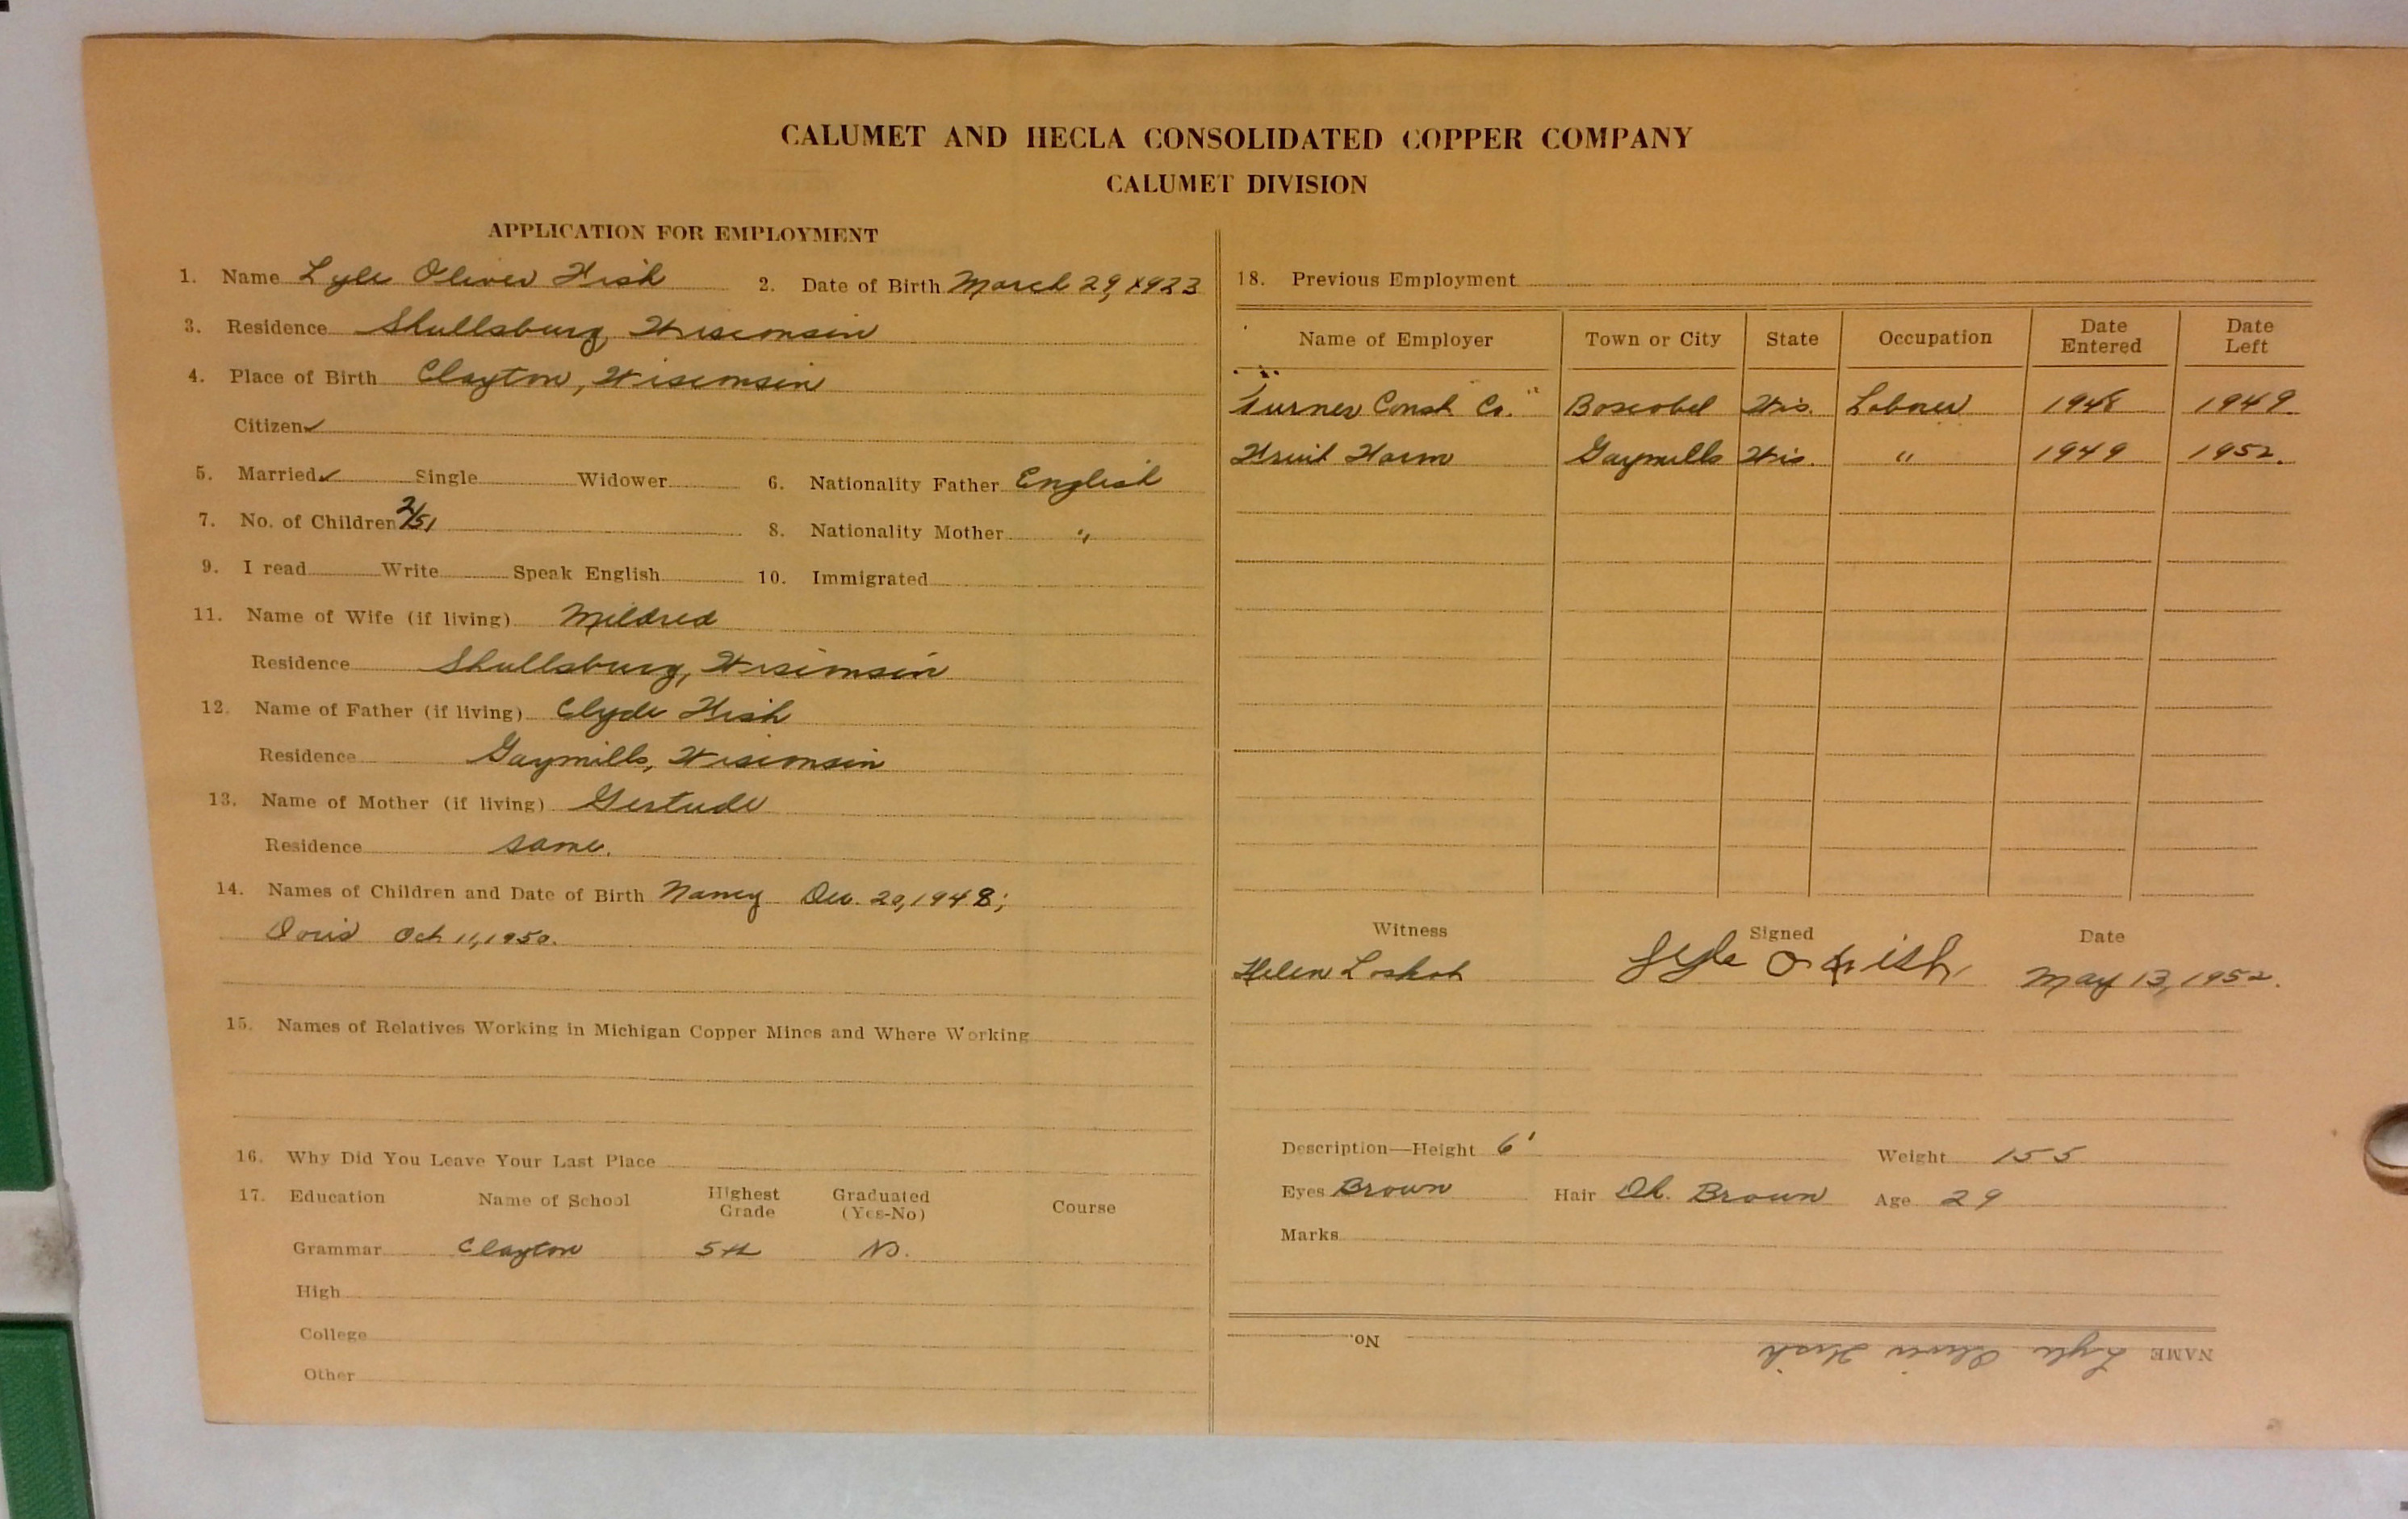 CALUMET AND HECLA CONSOLIDATED COPPER COMPANY
CALUMET DIVISION
APPLICATION FOR EMPLOYMENT
1. Name Lyle Oliver Fish 2. Date of Birth March 29, 1923
3. Residence Shullsburg, Wisconsin
4. Place of Birth Clayton, Wisconsin
Citizen ✓
5. Married ✓ Single Widower 6. Nationality Father English
7. No. of Children 2/51 8. Nationality Mother "
9. I read Write Speak English 10. Immigrated
11. Name of Wife (if living) Mildred
Residence Shullsburg, Wisconsin
12. Name of Father (if living) Clyde Fish
Residence Gaymills, Wisconsin
13. Name of Mother (if living) Gertude
Residence same.
14. Names of Children and Date of Birth Nancy Dec. 20, 1948;
Doris Oct 11, 1950.
15. Names of Relatives Working in Michigan Copper Mines and Where Working
16. Why Did You Leave Your Last Place
17. Education Name of School Highest Grade Graduated (Yes-No) Course
Grammar Clayton 5th No.
High
College
Other
18. Previous Employment
Name of Employer Town or City State Occupation Date Entered Date Left
Turner Const. Co." Boscobel Wis. Laborer 1948 1949.
Fruit Farm Gaymills Wis. " 1949 1952.
Witness Signed Date
Helen Loskot Lyle O Fish May 13, 1952.
Description—Height 6' Weight 155
Eyes Brown Hair Dk. Brown Age 29
Marks
NAME Lyle Oliver Fish No.